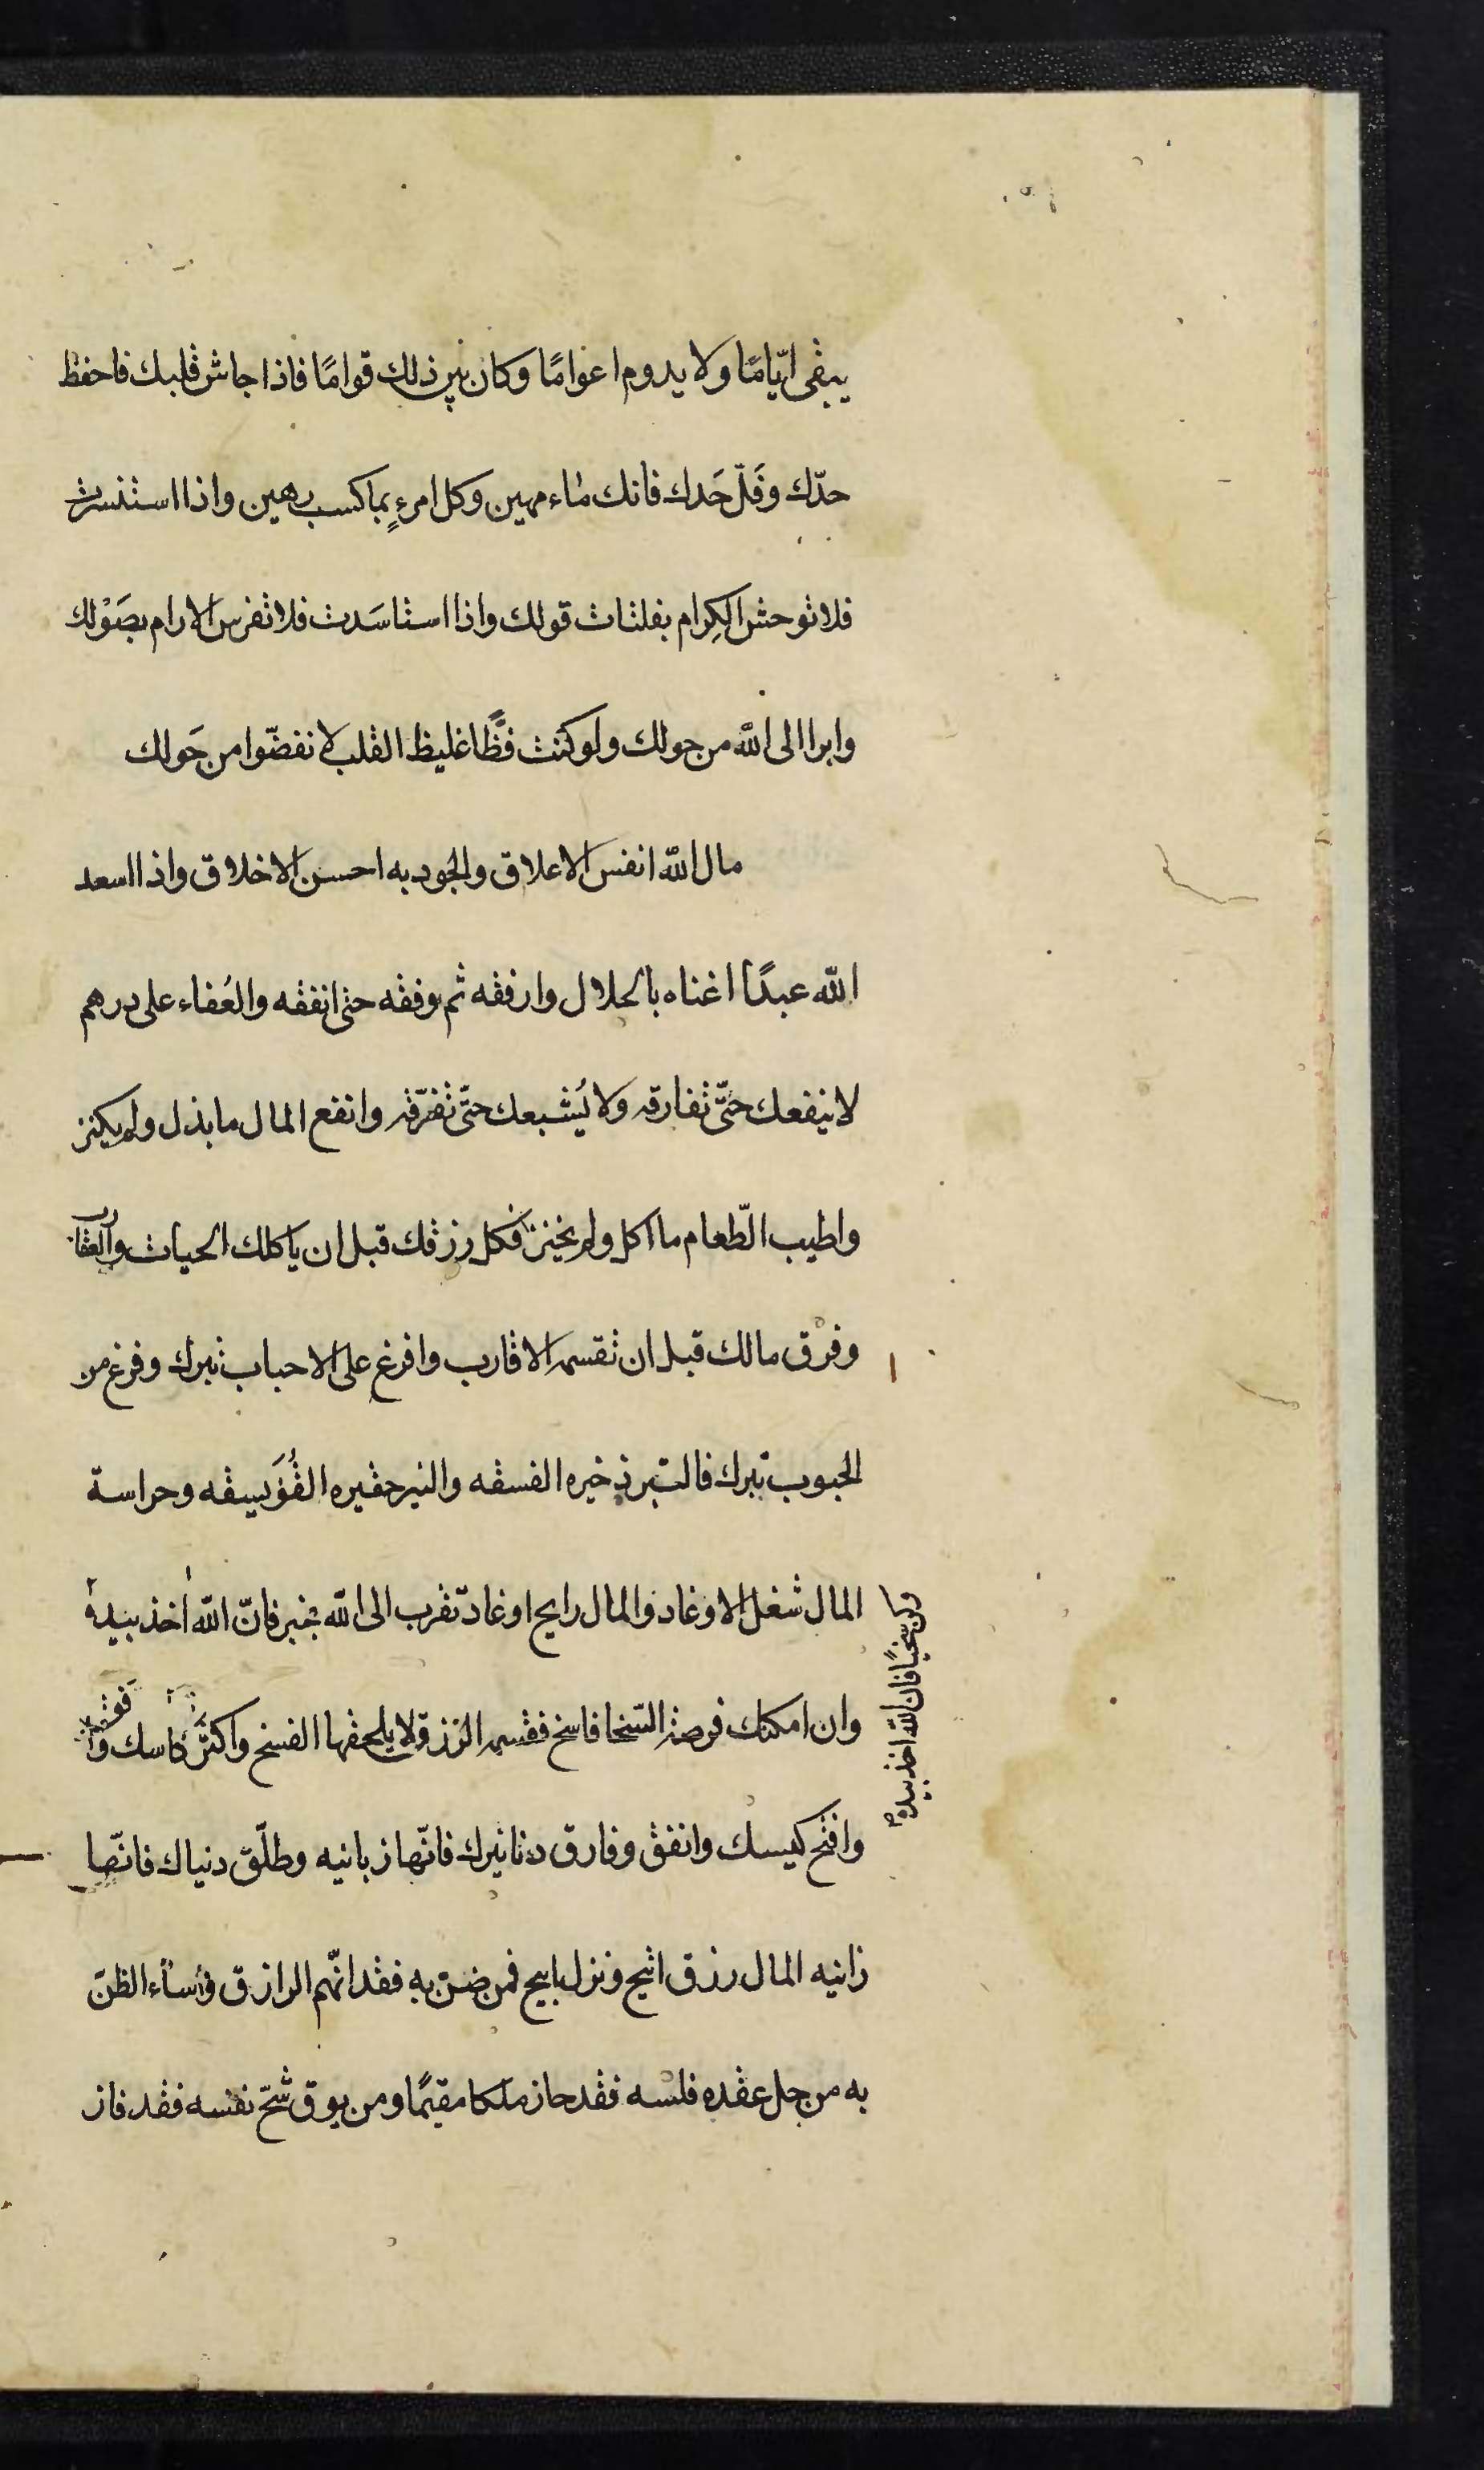 يبقى ايّامًا ولا يدوم اعوامًا وكان بين ذلك قوامًا فاذا جاش قلبك فاحفظ
حدّك وفَلّ حَدك فانك ماء مهين وكل امرءٍ بما كسب رهين واذا استنسرت
فلا توحش الكِرام بفلتات قولك واذا استاسَدت فلا تفرس الارام بصَوْلك
وابرا الى الله من حولك ولو كنت فظًّا غليظ القلب لانفضّوا من حَولك
مال الله انفس الاعلاق والجود به احسن الاخلاق واذا اسعد
الله عبدًا اغناه بالحلال وارفقه ثم يوفقه حتى انفقه والعُفاء على درهم
لا ينفعك حتّى تفارقه ولا يُشبعك حتّى تفرّقه وانفع المال ما بذل ولم يكنز
واطيب الطّعام ما اكل ولم يخنز فكل رزقك قبل ان ياكلك الحيات والعقارب
وفرق مالك قبل ان تقسمه الاقارب وافرغ على الاحباب تبرك وفرغ من
الحبوب نبرك فالتبر ذخيره الفسقه والنبر حفيره الفُوَيسقه وحراسة
المال شغل الاوغاد والمال رايح او غاد تقرب الى الله بخبز فانّ الله اخذ بيده
وكن سخيًا فان الله اخذ بيده
وان امكنك فرصة السّخا فاسخ فقسمه الرزق لا يلحقها الفسخ واكثر كاسك
وافتح كيسك وانفق وفارق دنانيرك فانّها زبانيه وطلّق دنياك فانّها
زانيه المال رزق اتيح ونزل ابيح فمن ضنّ به فقد اتّهم الرازق واساء الظنّ
به من حل عقده فلسه فقد حاز ملكا مقيمًا ومن يوق شحّ نفسه فقد فاز